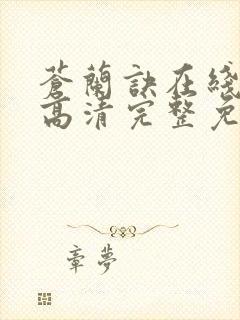 蒼蘭訣在綫
高清完整免
章夢